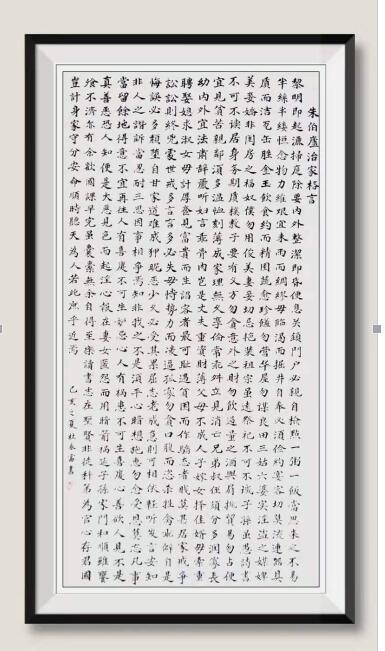 朱伯廬治家格言
黎明即起灑掃庭除要內外整潔既昏便息關鎖門戶必親自檢點一粥一飯當思來之不易
半絲半縷恆念物力維艱宜未雨而綢繆毋臨渴而掘井自奉必須儉約宴客切莫流連器具
質而潔瓦缶胜金玉飲食約而精園蔬愈珍饈勿營华屋勿謀良田三姑六婆實淫盜之媒婢
美妾嬌非閨房之福奴僕勿用俊美妻妾切忌艷裝祖宗雖遠祭祀不可不誠子孫雖愚詩書
不可不讀居身務期質樸教子要有义方勿貪意外之財勿飲過量之酒與肩挑貿易勿占便
宜見貧苦親鄰須多溫恤刻薄成家理無久享倫常乖舛立見消亡兄弟叔侄須分多潤寡長
幼內外宜法肅辭嚴聽妇言乖骨肉豈是丈夫重資財薄父母不成人子嫁女擇佳婿毋索重
聘娶媳求淑女毋計厚奩見富貴而生諂容者最可恥遇貧窮而作驕態者賤莫甚居家戒爭
訟訟則終兇處世戒多言言多必失毋恃勢力而凌逼孤寡勿貪口腹而恣殺牲禽乖僻自是
悔誤必多頹墮自甘家道難成狎昵惡少久必受其累屈志老成急則可相依輕聽發言安知
非人之譖訴當忍耐三思因事相爭焉知非我之不是須平心暗想施惠勿念受恩莫忘凡事
當留餘地得意不宜再往人有喜慶不可生妒忌心人有禍患不可生喜慶心善欲人見不是
真善惡恐人知便是大惡見色而起淫心報在妻女匿怨而用暗箭禍延子孫家門和順雖饔
飧不濟亦有余歡國課早完雖囊橐無余自得至樂讀書志在聖賢非徒科第為官心存君國
豈計身家守分安命順時聽天為人若此庶乎近焉
己亥之夏